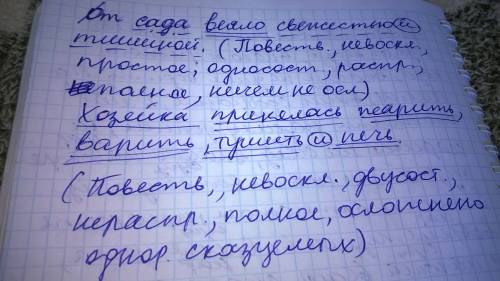 От сада веяло свежестью и
тишиной. (Повеств., невоскл.,
простое; односост., распр.,
полное, ничем не осл)
Хозяйка принялась жарить,
варить, тушить и печь
(Повеств., невоскл., двусост.,
нераспр., полное, осложнено
однор. сказуемых)